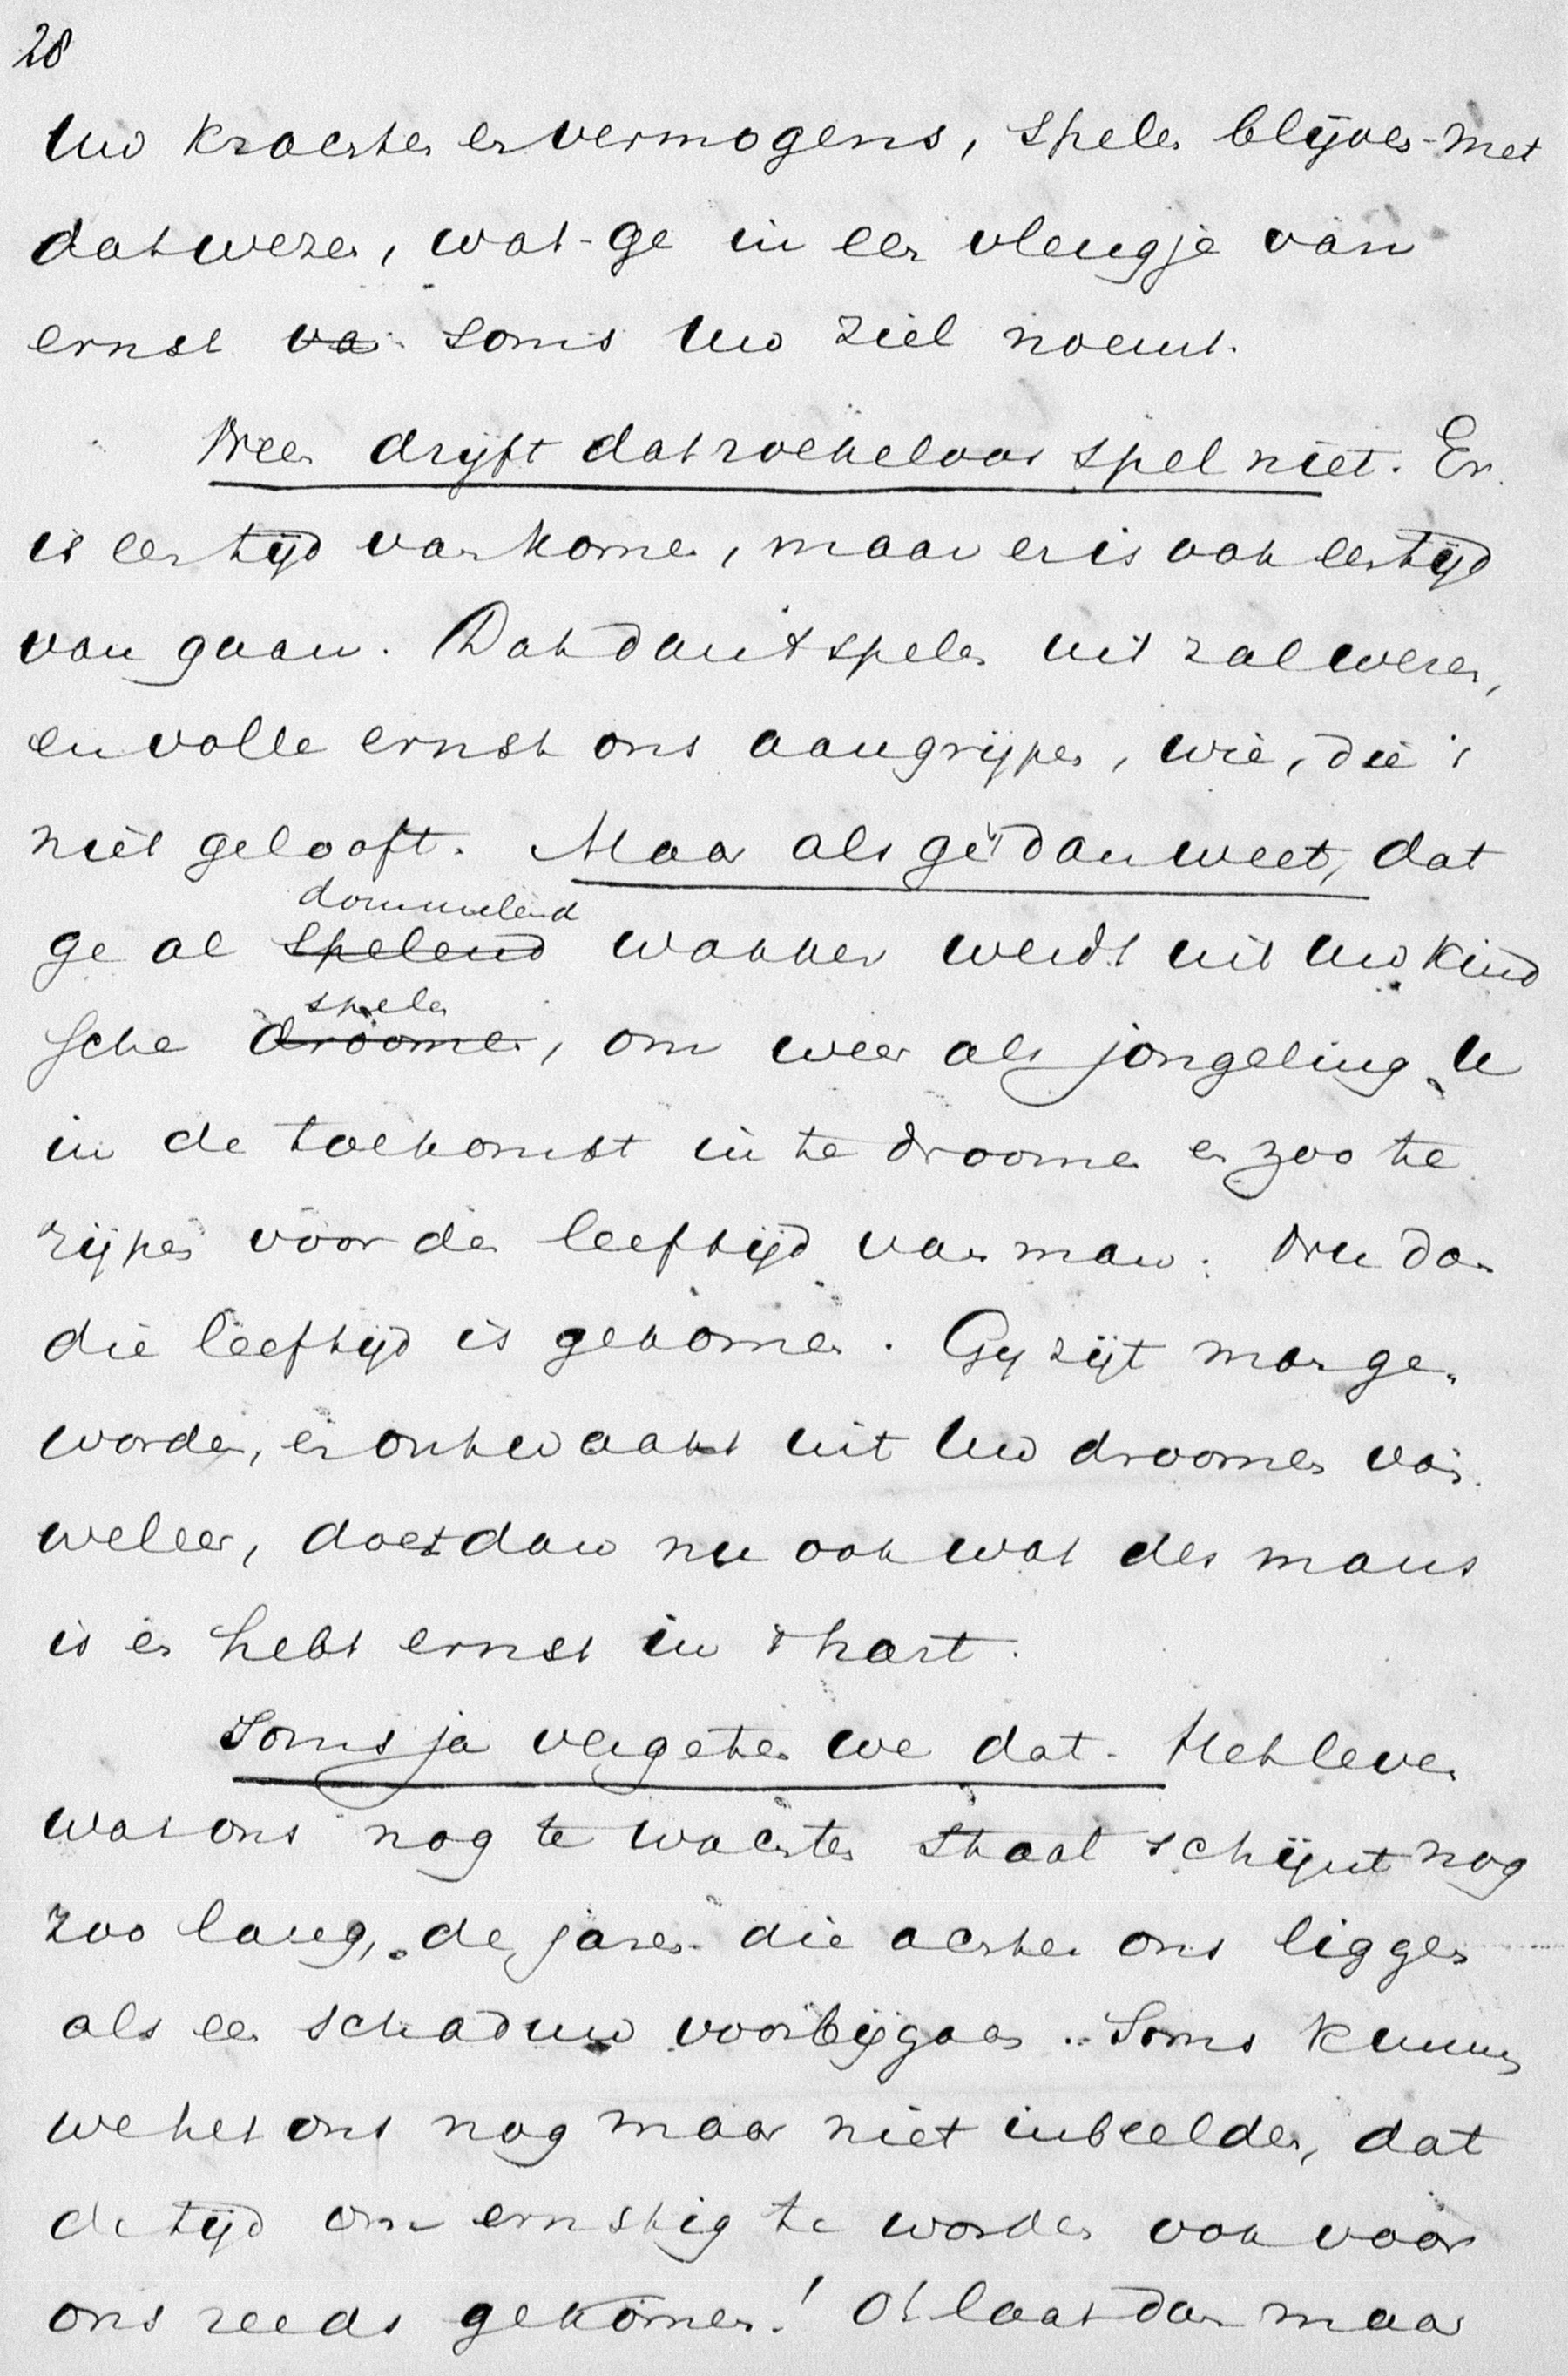 28
Uw krachten en vermogens, spelen blijven met
dat wezen, wat ge in een vleugje van
ernst va soms Uw ziel noemt.
Neen drijft dat roekeloos spel niet. Er
is een tijd van komen, maar er is ook een tijd
van gaan. Dat dan 't spelen uit zal wezen,
en volle ernst ons aangrijpen, wie, die 't
niet gelooft. Maar als ge 't dan weet, dat
dommelend
ge al spelend wakker werdt uit Uw kind
spelen
sche droomen, om weer als jongeling U
in de toekomst in te droomen en zoo te
rijpen voor den leeftijd van man. Nu dan
die leeftijd is gekomen. Gij zijt man ge„
worden, en ontwaakt uit Uw droomen van
weleer, doet dan nu ook wat des mans
is en hebt ernst in 't hart.
Soms ja vergeten we dat. Het leven
wat ons nog te wachten staat schijnt nog
zoo lang, de jaren die achter ons liggen
als een schaduw voorbijgaan. Soms kunnen
we het ons nog maar niet inbeelden, dat
de tijd om ernstig te worden ook voor
ons reeds gekomen! O! laat dan maar